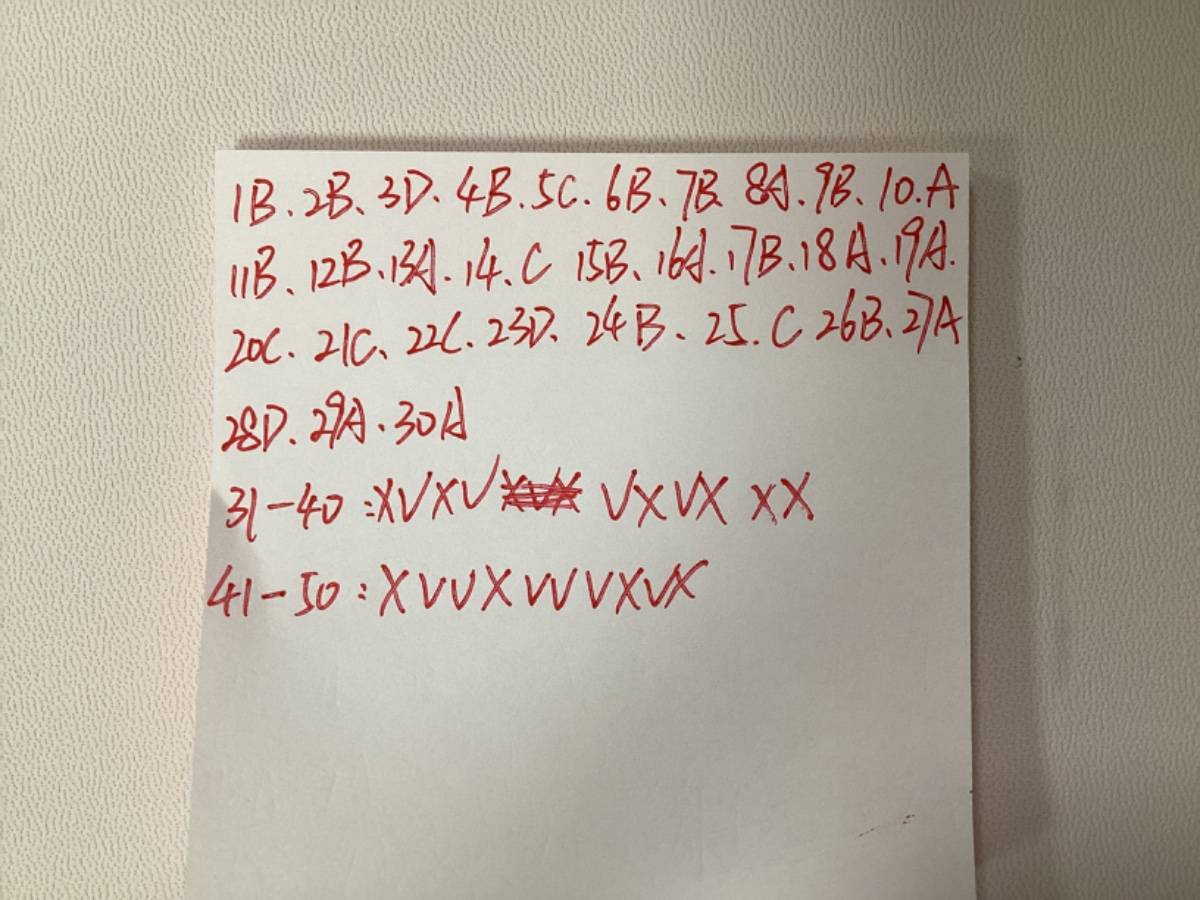 1B、2B、3D、4B.5C、6B、7B、8A.9B、10.A
11B、12B、13A.14.C 15B、16A.17B、18A.19A.
20C、21C、22C、23D、24B、25.C 26B、27A
28D、29A.30A
31-40:X√X√ √X√X XX
41-50:X√√X√√√X√X